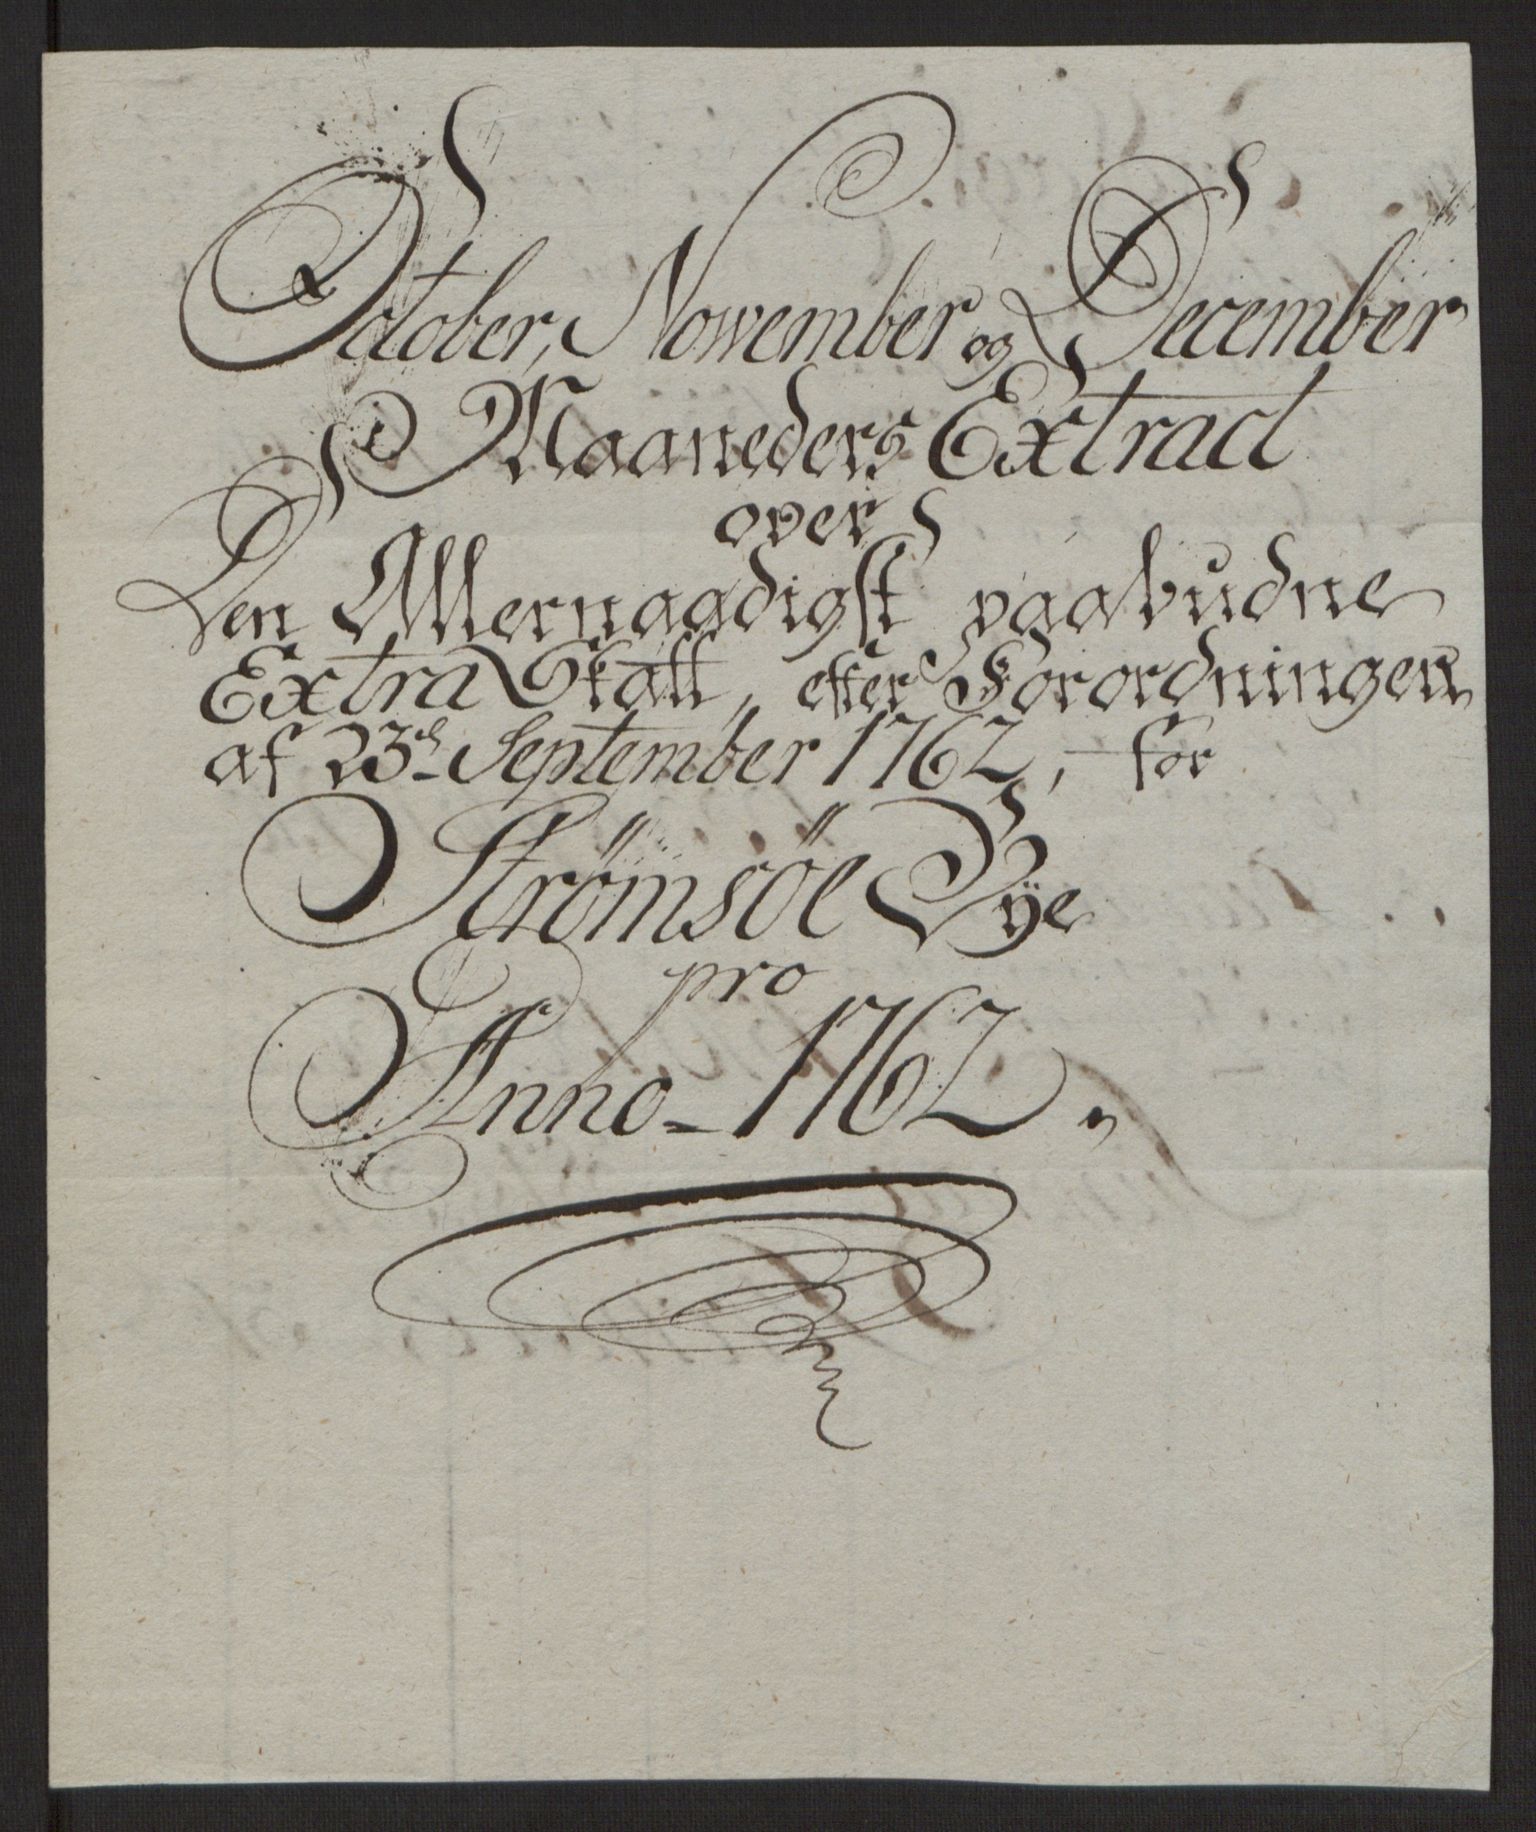 October, November og December
Maaneders Extract
over
Den Allernaadigst paabudne
Extra Skatt, efter Forordningen
af 23de September 1762, for
Strømsøe Bÿe
pro
Anno 1762.